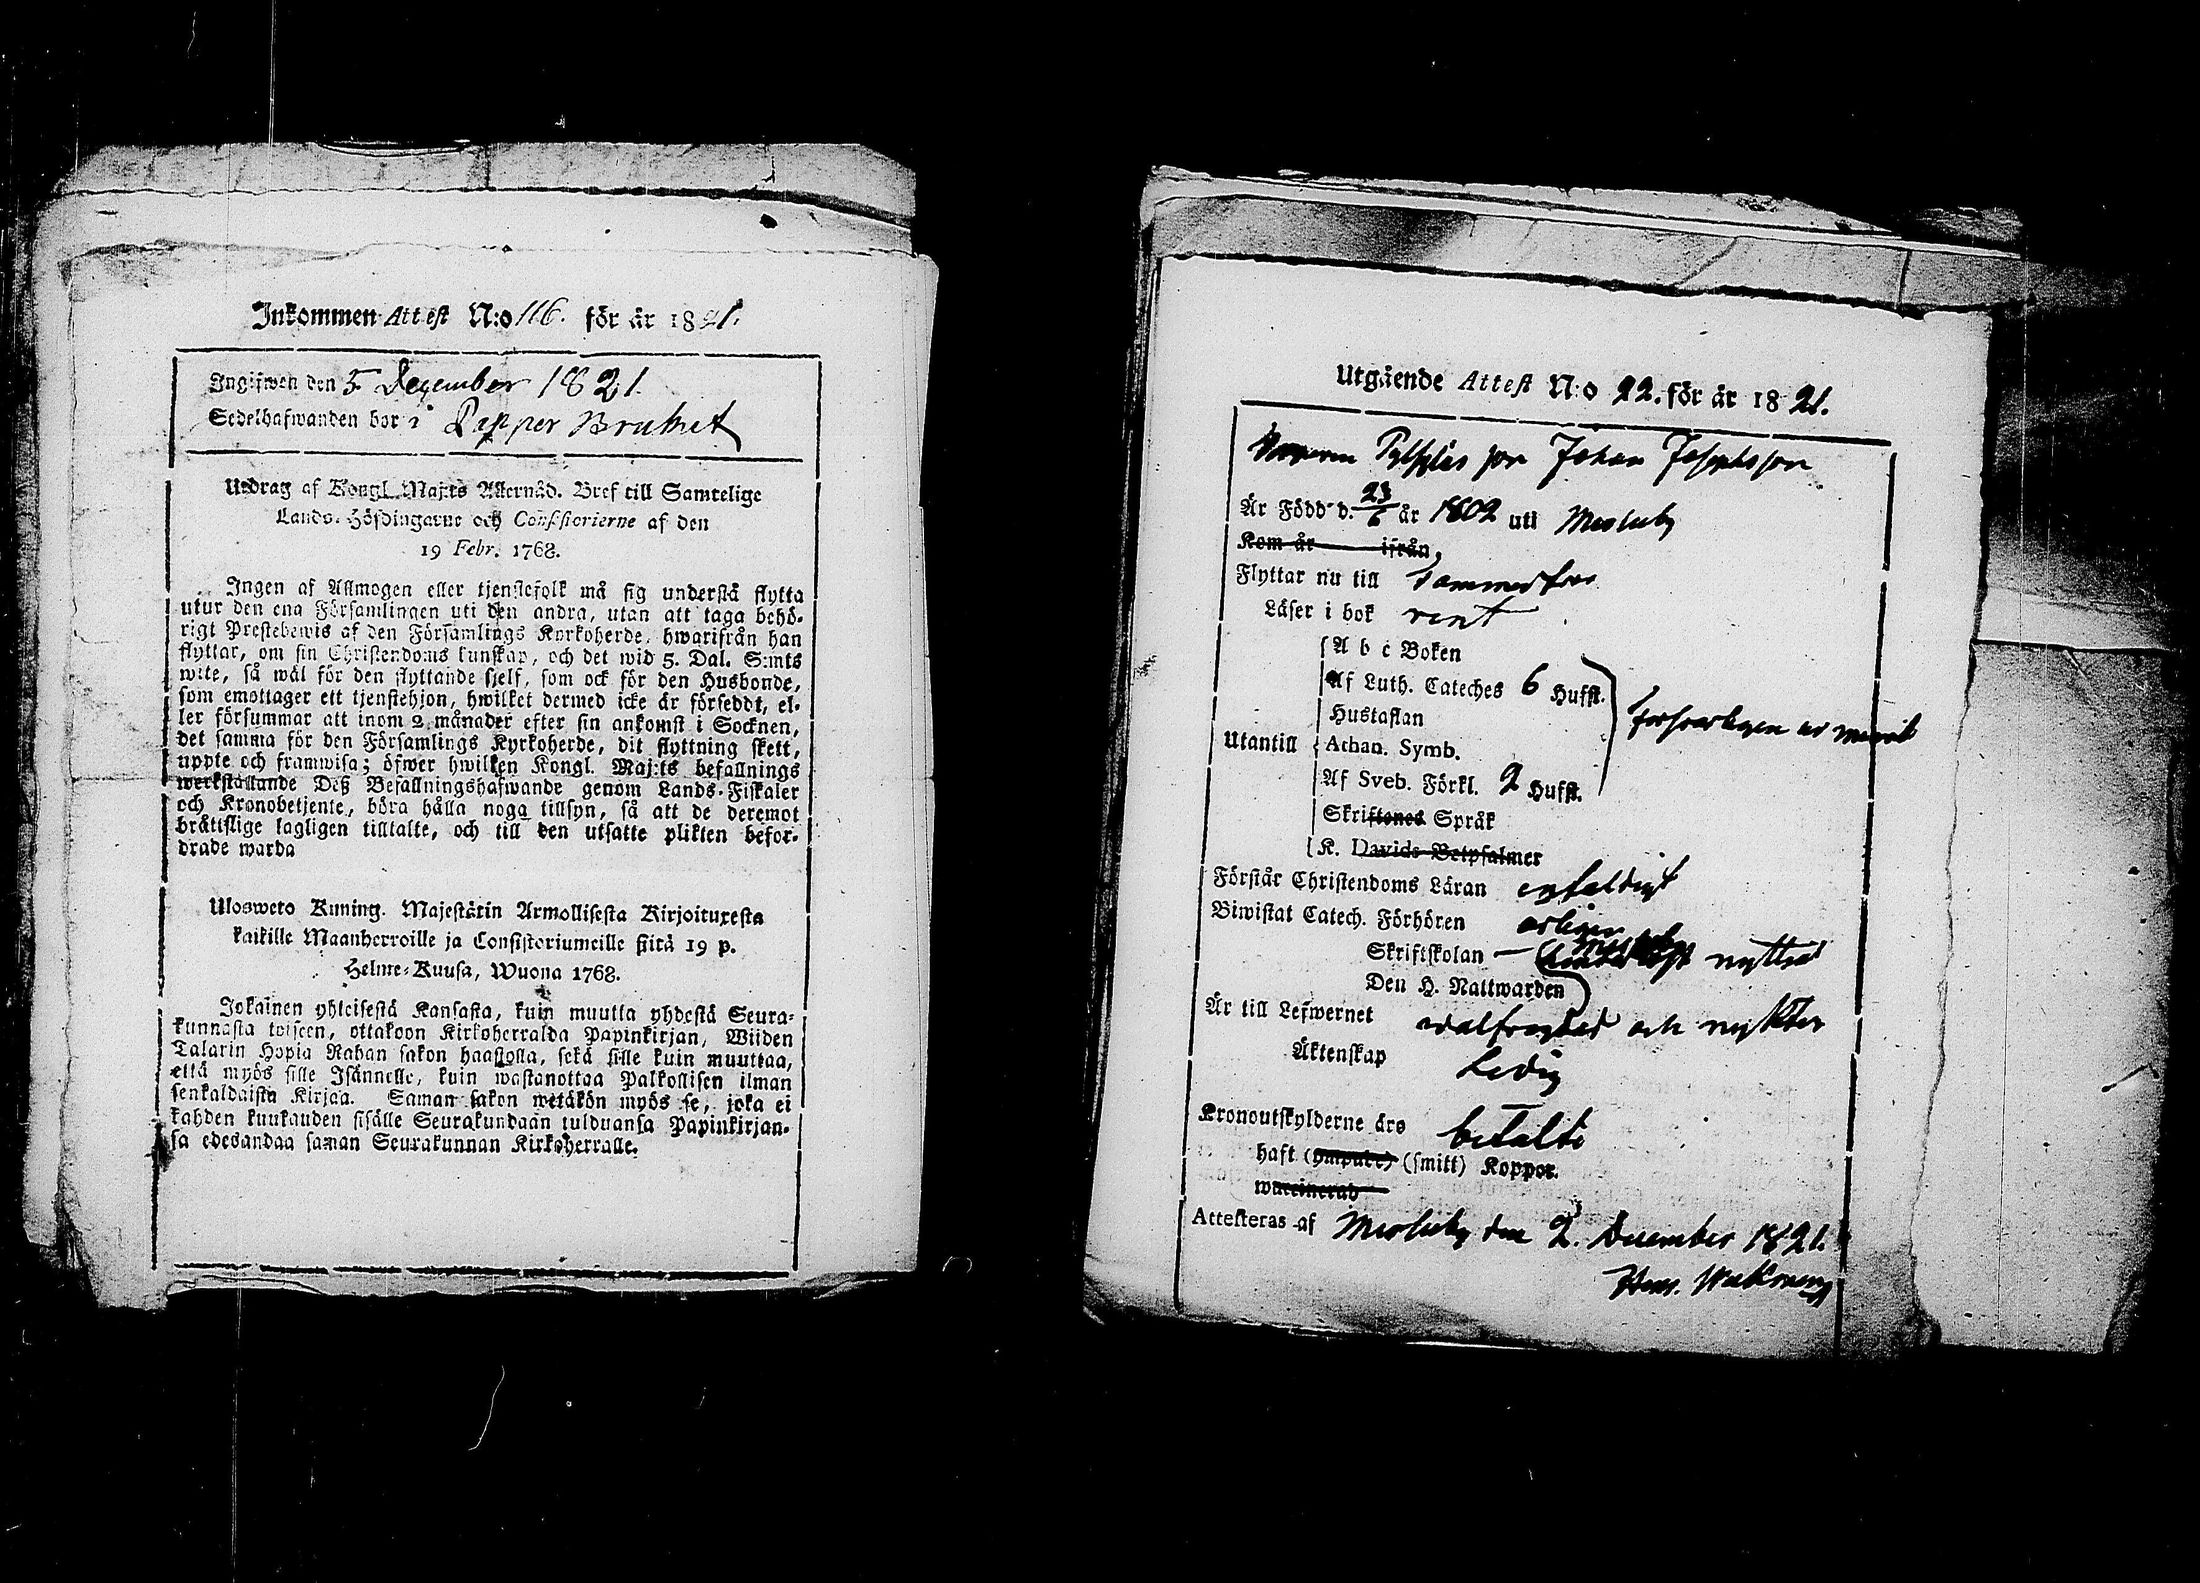 Inkommen Attest N:o 116. för år 1821.
Ingifwen den 5 December 1821.
Sedelhafwanden bor i Papper Bruket
Utdrag af Kongl. Maj:ts Allernåd. Bref till Samtelige
Lands-Höfdingarne och Consistorierne af den
19 Febr. 1768.
Ingen af Allmogen eller tjenstefolk må sig understå flytta
utur den ena Församlingen uti den andra, utan att taga behö-
rigt Prestebewis af den Församlings Kyrkoherde, hwarifrån han
flyttar, om sin Christendoms kunskap, och det wid 5. Dal. S:mts
wite, så wäl för den flyttande sjelf, som ock för den Husbonde,
som emottager ett tjenstehjon, hwilket dermed icke är försedt, el-
ler försummar att inom 2 månader efter sin ankomst i Socknen,
det samma för den Församlings Kyrkoherde, dit flyttning skett,
uppte och framwisa; öfwer hwilken Kongl. Maj:ts befallnings
werkställande Deß Befallningshafwande genom Lands-Fiskaler
och Kronobetjente, böra hålla noga tillsyn, så att de deremot
bråttslige lagligen tilltalte, och till den utsatte plikten befor-
drade warda
Ulosweto Kuning. Majestätin Armollisesta Kirjoituxesta
kaikille Maanherroille ja Consistoriumeille siitä 19 p.
Helme-Kuusa, Wuona 1768.
Jokainen yhteisestä Kansasta, kuin muutta yhdestä Seura-
kunnasta toiseen, ottakoon Kirkoherralda Papinkirjan, Wiiden
Talarin Hopia Rahan sakon haastolla, sekä sille kuin muuttaa,
että myös sille Isännelle, kuin wastanottaa Palkollisen ilman
senkaldaista Kirjaa. Saman sakon wetäkön myös se, joka ei
kahden kuukauden sisälle Seurakundaan tulduansa Papinkirjan-
sa edesandaa saman Seurakunnan Kirkoherralle.
Utgående Attest N:o 22. för år 1821.
Johan Josephsson
Är Född d. 23/6 år 1802 uti Messuby
Kom år ifrån
Flyttar nu till Tammerfors
Läser i bok rent
A b c Boken
Af Luth. Cateches 6 Hufst.
Hustaflan
Utantill Athan. Symb.
Af Sveb. Förkl. 2 Hufst.
Skriftenes Språk
K. Davids Botpsalmer
Förstår Christendoms Läran enfaldigt
Biwistat Catech. Förhören årligen
Skriftskolan nyttjat
Den H. Nattwarden
Är till Lefwernet wälfrägdad och nykter
Äktenskap Ledig
Kronoutskylderne äro betalte
haft (ympade) (smitt) Koppor.
waccinerad
Attesteras af Messuby den 2. December 1821.